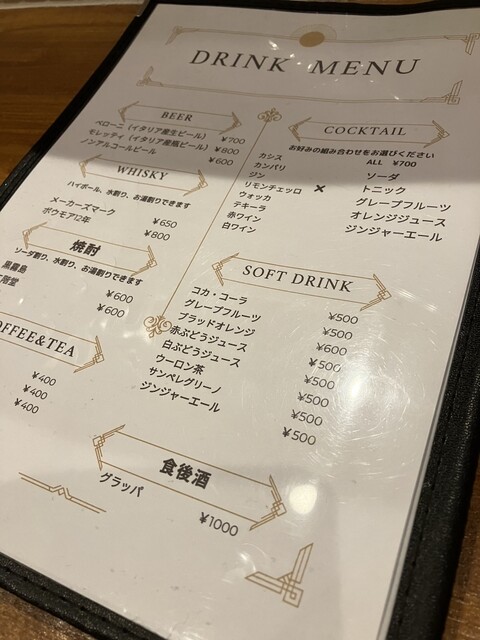 DRINK MENU
BEER
ペローニ（イタリア産生ビール） ¥700
モレッティ（イタリア産瓶ビール） ¥800
ノンアルコールビール ¥600
WHISKY
ハイボール、水割り、お湯割りできます
メーカーズマーク ¥650
ボウモア12年 ¥800
焼酎
ソーダ割り、水割り、お湯割りできます
黒霧島 ¥600
階堂 ¥600
OFFEE&TEA
¥400
¥400
¥400
COCKTAIL
お好みの組み合わせをお選びください
ALL ¥700
カシス
カンパリ
ジン
リモンチェッロ
ウォッカ
テキーラ
赤ワイン
白ワイン
×
ソーダ
トニック
グレープフルーツ
オレンジジュース
ジンジャーエール
SOFT DRINK
コカ・コーラ ¥500
グレープフルーツ ¥500
ブラッドオレンジ ¥600
赤ぶどうジュース ¥500
白ぶどうジュース ¥500
ウーロン茶 ¥500
サンペレグリーノ ¥500
ジンジャーエール ¥500
食後酒
グラッパ ¥1000